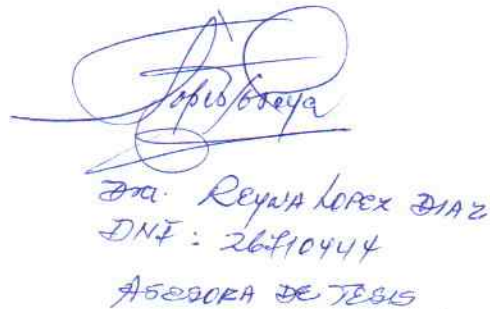 Dra. REYNA LOPEZ DIAZ
DNI: 26710444
ASESORA DE TESIS